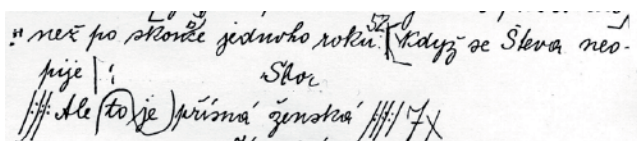 než po skonče jednoho roku. 52 [Když se Števa neo-
pije
Sbor
Ale to je přísná ženská 7x